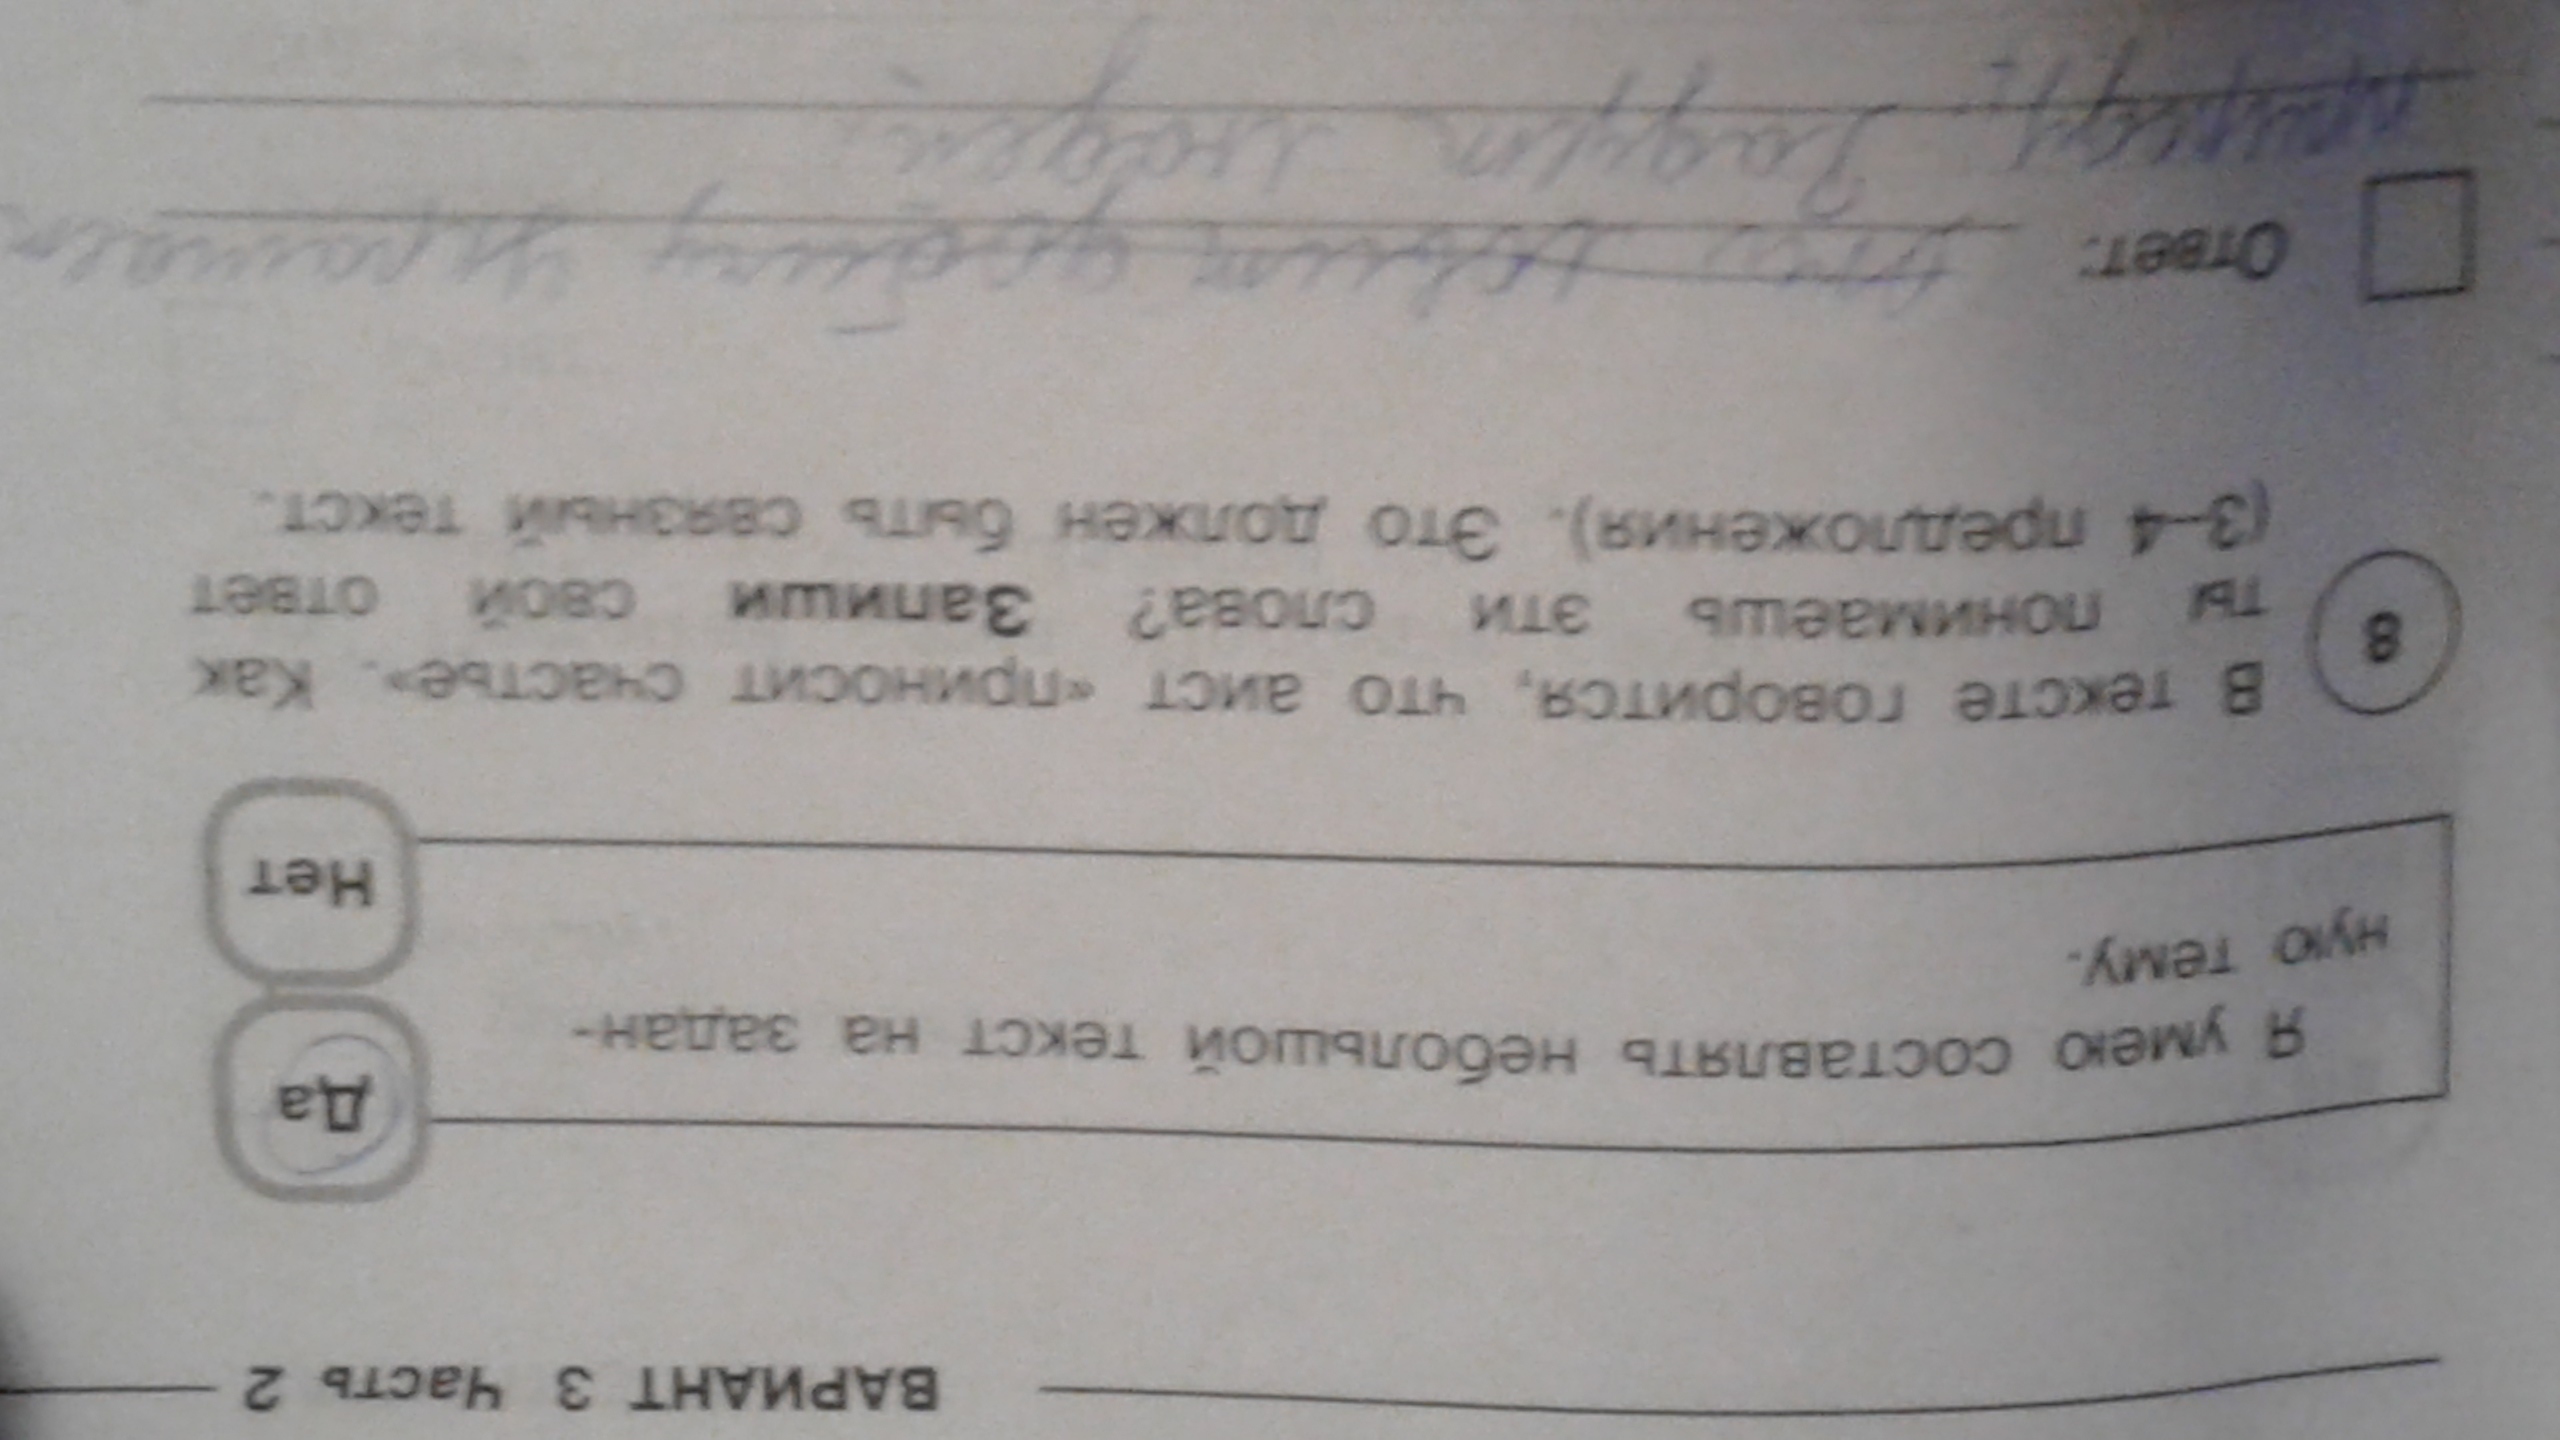 ВАРИАНТ 3 Часть 2
Я умею составлять небольшой текст на задан-
ную тему.
Да
Нет
8
В тексте говорится, что аист «приносит счастье». Как
ты понимаешь эти слова? Запиши свой ответ
(3–4 предложения). Это должен быть связный текст.
Ответ:
людей.